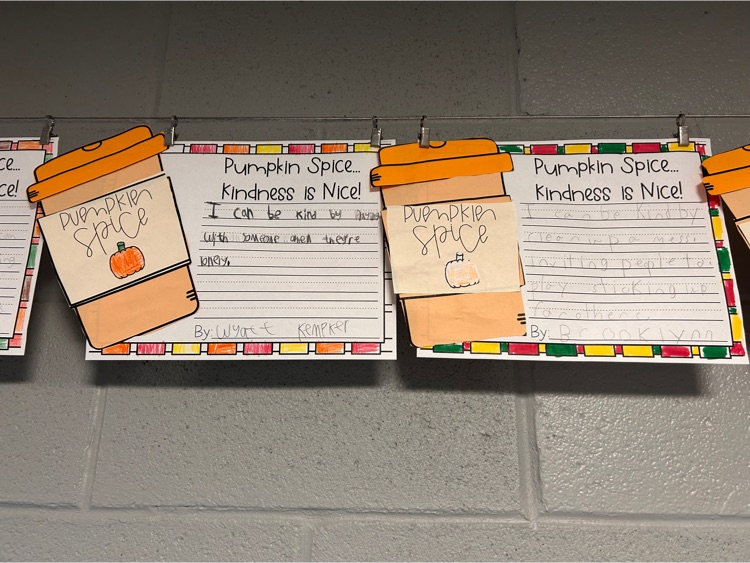 ce...
ce!
Pumpkin
Spice
Pumpkin Spice...
Kindness is Nice!
I can be kind by playing
with someone when they're
lonely.
By: Wyatt Kempker
Pumpkin
Spice
Pumpkin Spice...
Kindness is Nice!
I can be kind by
clean up a mess,
inviting people to
play sticking up
for others.
By: Brooklynn